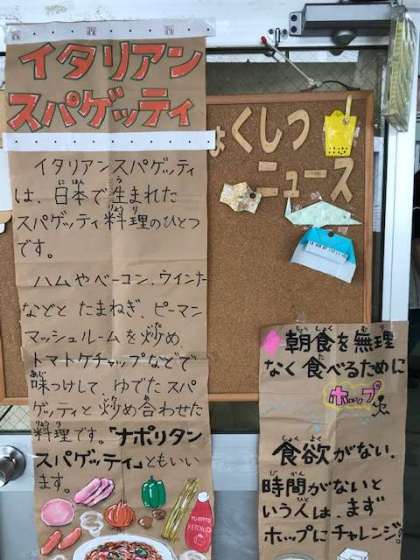 イタリアン
スパゲッティ
イタリアンスパゲッティ
は、日本で生まれた
スパゲッティ料理のひとつ
です。
ハムやベーコン、ウインナー
などと たまねぎ、ピーマン
マッシュルームを炒め、
トマトケチャップなどで
味つけして、ゆでたスパ
ゲッティと炒め合わせた
料理です。「ナポリタン
スパゲッティ」ともいい
ます。
ょくしつ
ニュース
朝食を無理
なく食べるために
ホップ
食欲がない、
時間がないと
いう人は、まず
ホップにチャレンジ!